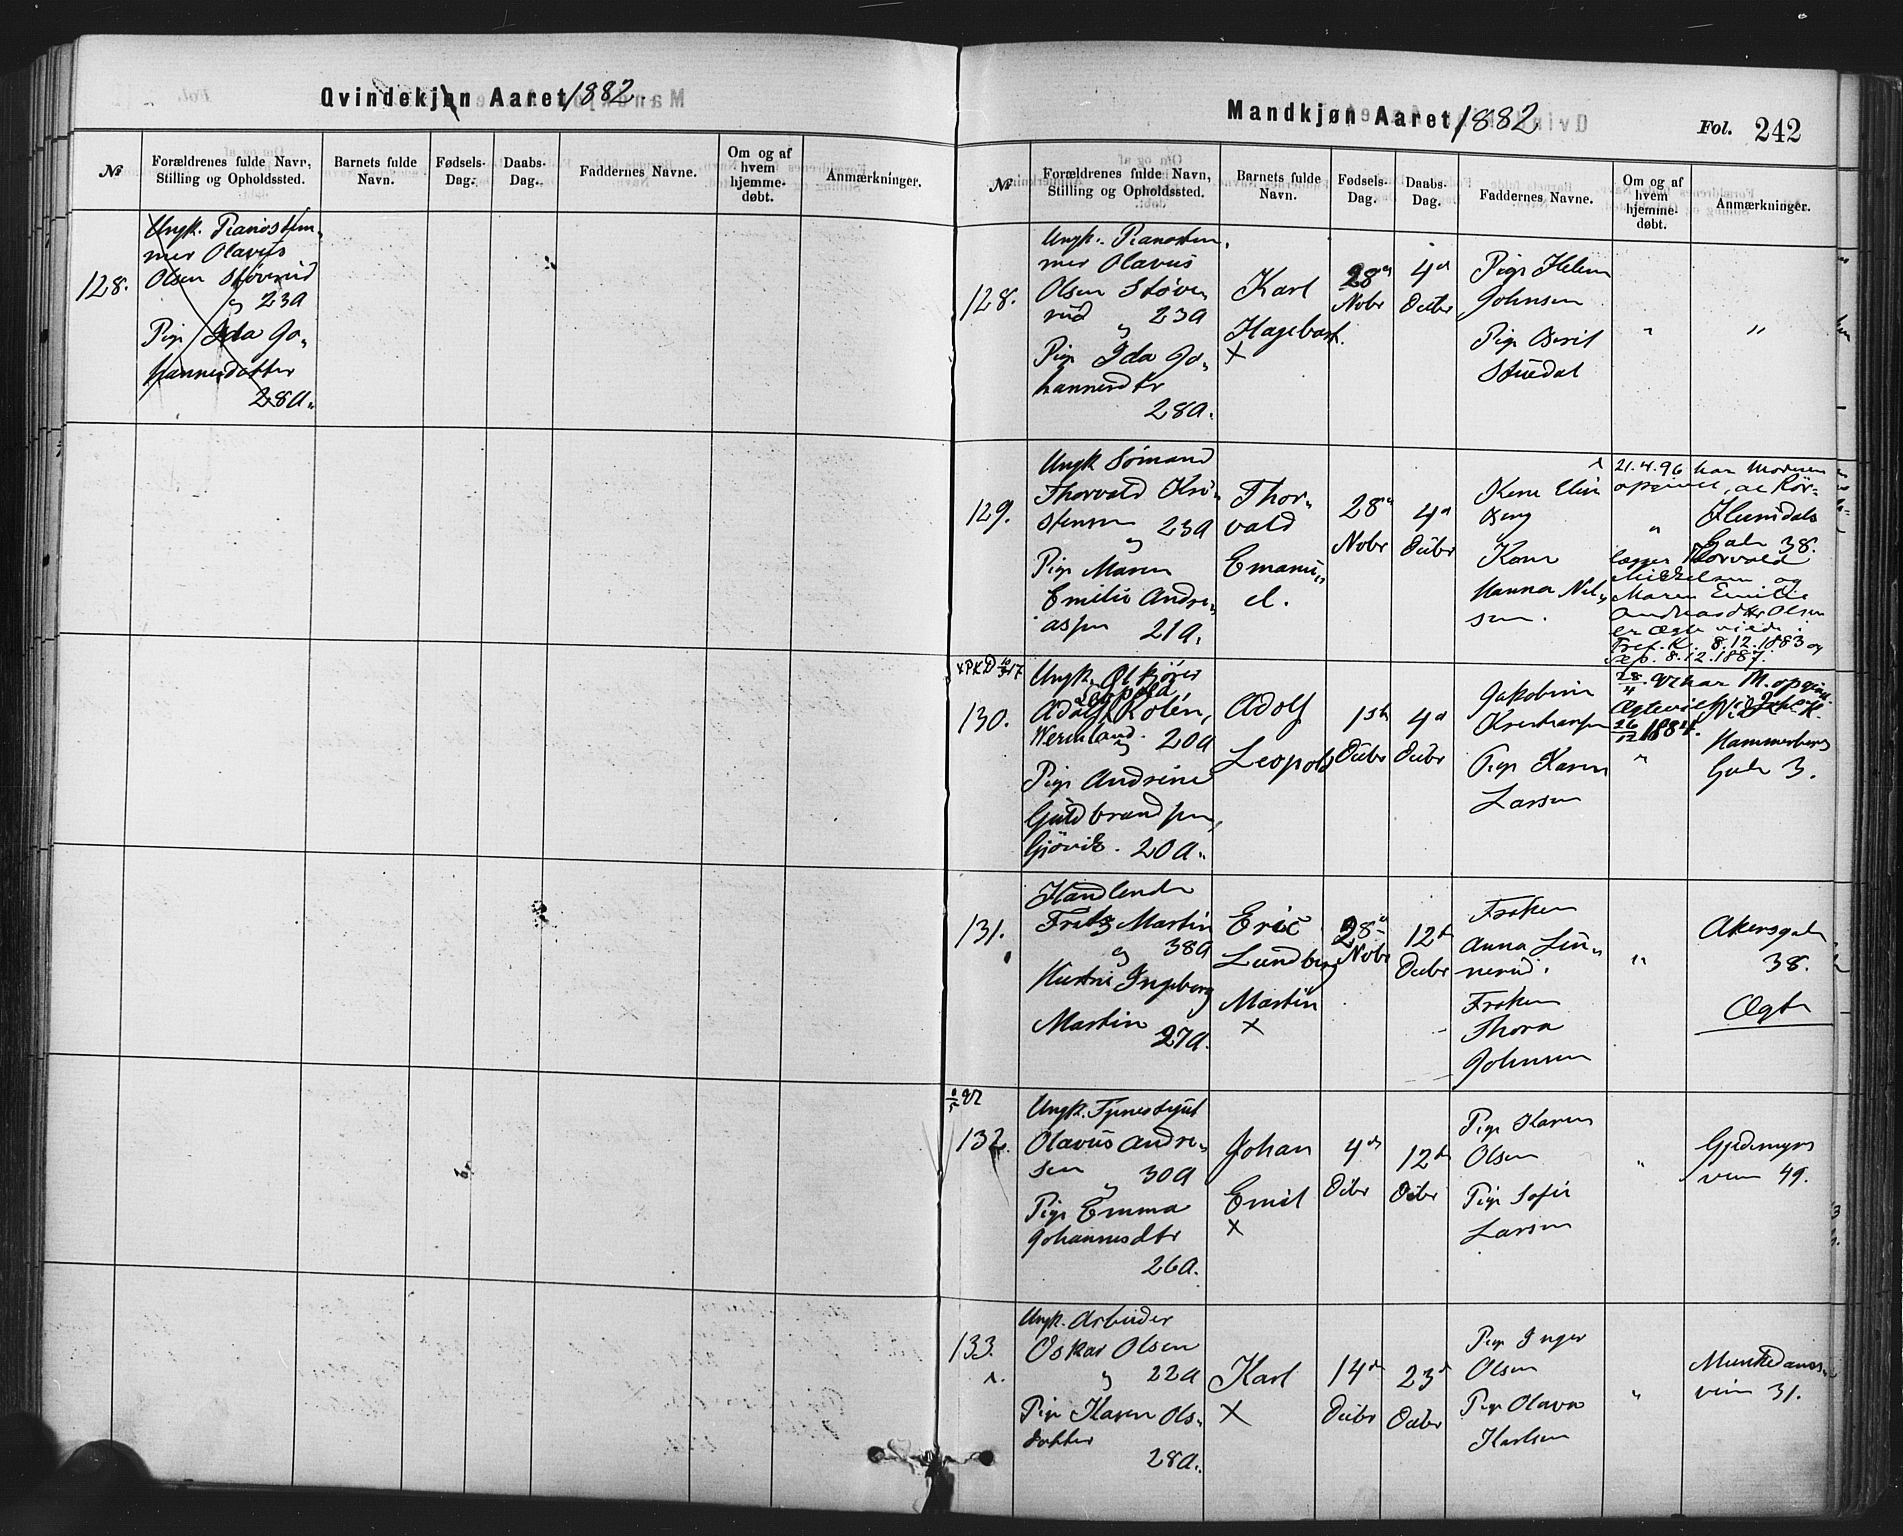 Qvindekjøn Aaret 1882.
№
Forældrenes fulde Navn, Stilling og Opholdssted.
Barnets fulde Navn.
Fødsels-Dag.
Daabs-Dag.
Faddernes Navne.
Om og af hvem hjemme-døbt.
Anmærkninger.
128.
Ungk. Pianostem-
mer Olavus
Olsen Støverud
og 23 A
Pige Ida Jo-
hannesdatter
28 A.
Mandkjøn Aaret 1882.
Fol. 242
№
Forældrenes fulde Navn, Stilling og Opholdssted.
Barnets fulde Navn.
Fødsels-Dag.
Daabs-Dag.
Faddernes Navne.
Om og af hvem hjemme-døbt.
Anmærkninger.
128.
Ungk. Pianostem-
mer Olavus
Olsen Støve-
rud 23 A
og
Pige Ida Jo-
hannesdtr
28 A.
Karl
Hagebart.
X
28de
Novbr
4de
Decbr
Pige Helene
Johnsen
Pige Berit
Stuedal
"
"
129.
Ungk Sømand
Thorvald Kri-
stensen 23 A
og
Pige Maren
Emilie Andre-
assen 21 A.
Thor-
vald
Emanu-
el.
28de
Novbr
4de
Decbr
Kone Elise
Berg
Kone
Hanna Nil-
sen.
"
21.4.96 har Moderen
opgivet, at
Gade 38.
Thorvald
Mickelsen og
Maren Emilie
Andreasdtr Olsen
er Ægteviede i
8.12.1883 og
8.12.1887.
130.
Ungk. Ølkjører
Leopold
Adolf Rolén,
Wermland. 20 A
og
Pige Andrine
Guldbrandsen,
Gjøvik. 20 A.
Adolf
Leopold
1ste
Decbr
4de
Decbr
Jakobine
Kristiansen
Pige Karen
Larsen
28/4 97 har M. opgivet
Ægteviet
26/12 1884.
"
Hammersbergs
Gade 3.
131.
Handlende
Fritz Martin
og 38 A
Hustru Ingeborg
Martin 27 A.
Eric
Lundberg
Martin
X
28de
Novbr
12te
Decbr
Frøken
Anna Lin-
nerud.
Frøken
Thora
Johnsen
"
Akersgade
38.
Ægte
132.
Ungk. Tjenestgut
Olavus Andre-
sen 30 A
og
Pige Emma
Johannesdtr
26 A.
Johan
Emil
X
4de
Decbr
12te
Decbr
Pige Karen
Olsen
Pige Sofie
Larsen
"
Gjedemyrs
vein 49.
133.
Ungk. Arbeider
Oskar Olsen
og 22 A
Pige Karen Ols-
datter
28 A.
Karl
X
14de
Decbr
23de
Decbr
Pige Inger
Olsen
Pige Olava
Karlsen
"
Munkedams-
vein 31.